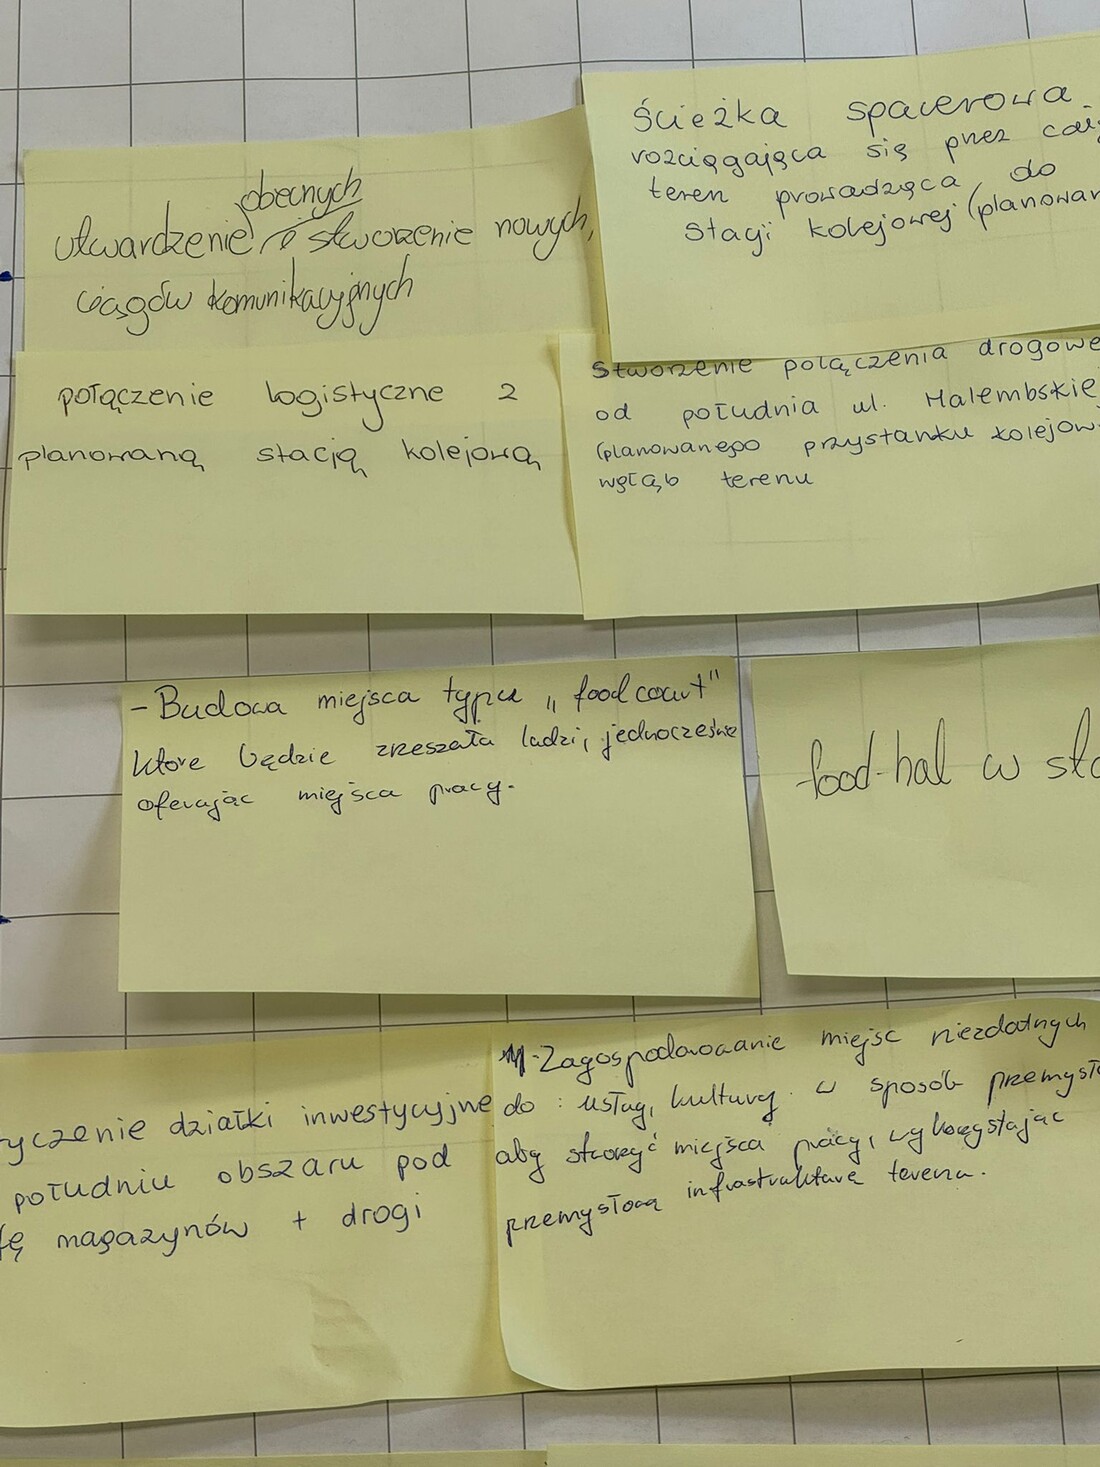 obecnych
utwardzenie i stworzenie nowych,
ciągów komunikacyjnych
Ścieżka spacerowa
rozciągająca się przez cał
teren prowadząca do
stacji kolejowej (planowan
połączenie logistyczne z
planowaną stacją kolejową
stworzenie połączenia drogowe
od południa ul. Halembskie
(planowanego przystanku kolejow
wgłąb terenu
- Budowa miejsca typu "food court"
które będzie zrzeszała ludzi, jednocześnie
oferując miejsca pracy.
food-hal w sta
yczenie działki inwestycyjne
południu obszaru pod
fę magazynów + drogi
- Zagospodarowanie miejsc niezdatnych
do: usług, kultury w sposób przemysło
aby stworzyć miejsca pracy, wykorzystując
przemysłową infrastrukturę terenu.